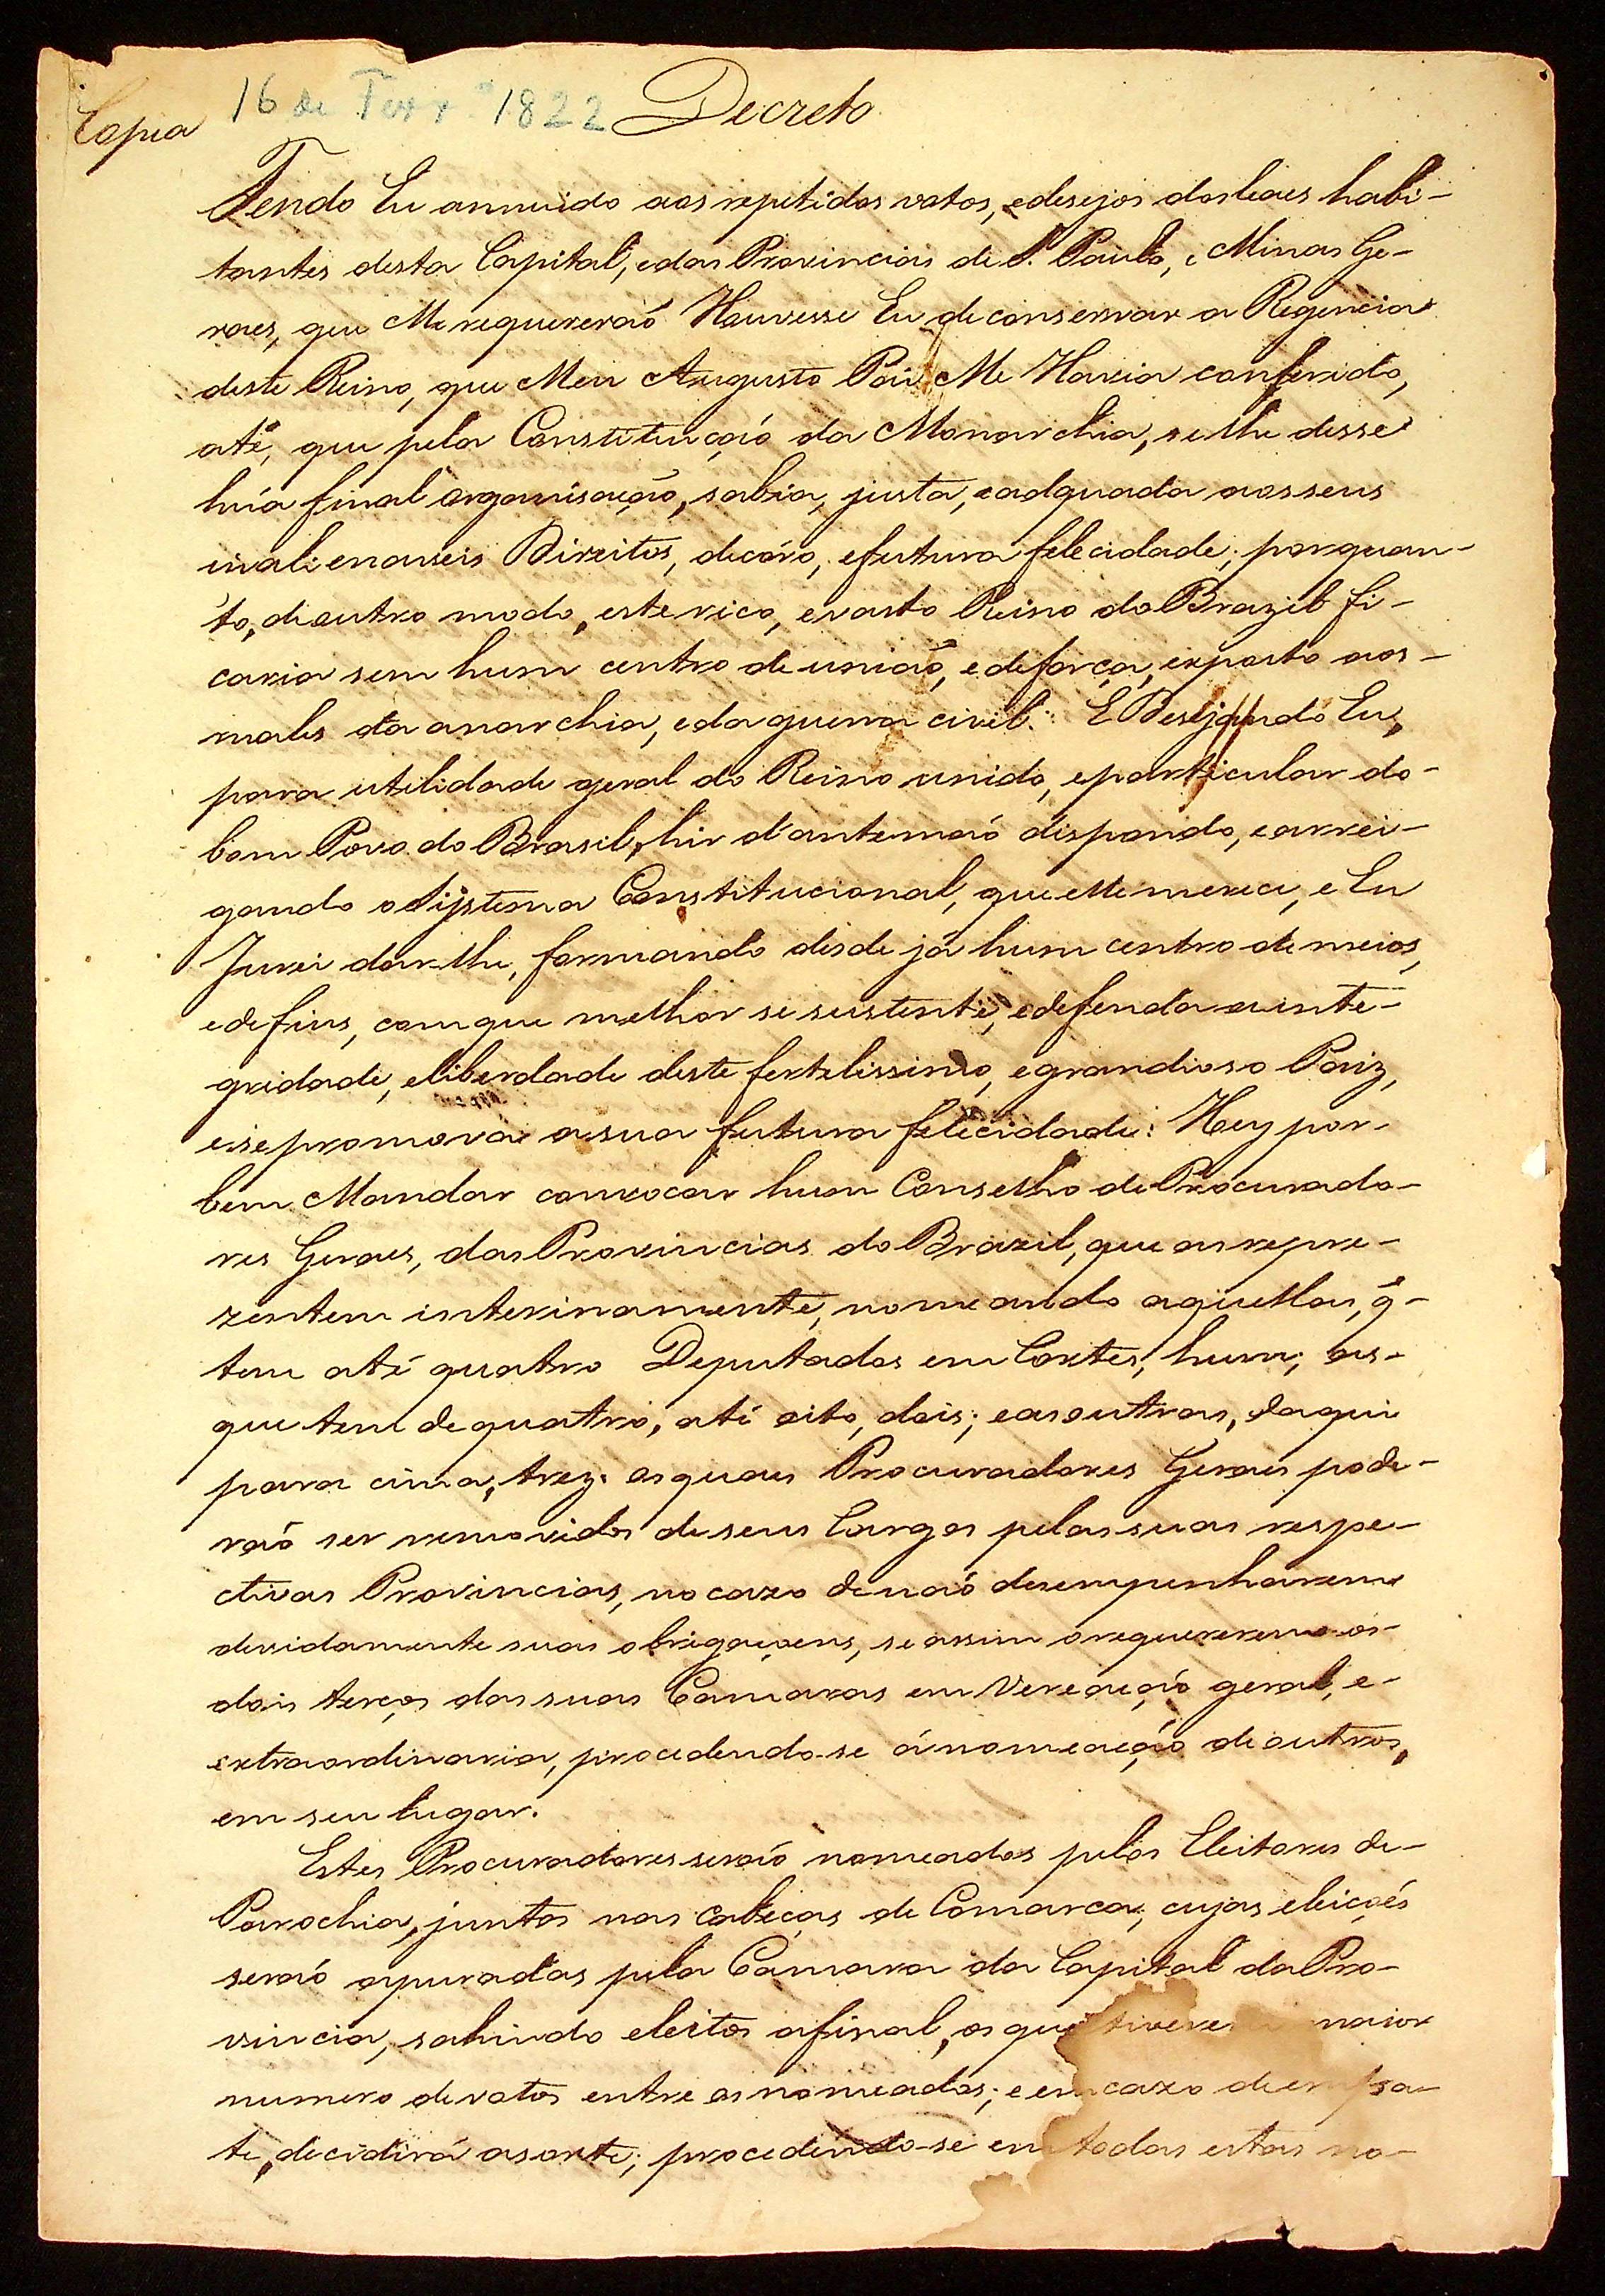 Copia 16 de Fevr.º 1822 Decreto
Tendo Eu annuido aos repetidos votos, e desejos dos leaes habi-
tantes desta Capital, e das Provincias de S. Paulo, e Minas Ge-
raes, que Me requereraõ Houvesse Eu de conservar a Regencia
deste Reino, que Meu Augusto Pai Me Havia conferido,
até, que pela Constituiçaõ da Monarchia, se lhe desse
huã final organisaçaõ, sabia, justa, e adquada aos seus
inalienaveis Direitos, decóro, e futura felecidade; porquan-
to, de outro modo, este rico, e vasto Reino do Brazil fi-
caria sem hum centro de uniaõ, e de força, exposto aos-
males da anarchia, e da guerra civil: E Desejando Eu,
para utilidade geral do Reino unido, e particular do-
bom Povo do Brasil, hir d'antemaõ dispondo, e arrei-
gando o Sijstema Constitucional, que elle merece, e Eu
Jurei dar-lhe, formando desde já hum centro de meios,
e de fins, com que melhor se sustente, e defenda a inte-
gridade, e liberdade deste fertelissimo, e grandioso Paiz,
e se promova a sua futura felecidade: Hey por-
bem Mandar convocar hum Conselho de Procurado-
res Geraes, das Provincias do Brazil, que as repre-
zentem interinamente, nomeando aquellas, q̃-
tem até quatro Deputados em Cortes, hum; as-
que tem de quatro, até oito, dois; e as outras, daqui
para cima, trez: os quaes Procuradores Geraes pode-
raõ ser removidos de seus Cargos pelas suas respe-
ctivas Provincias, no cazo de naõ desempenharem
devidamente suas obrigaçoens, se assim o requererem os-
dois terços das suas Camaras em Vereaçaõ geral, e-
extraordinaria, procedendo-se á nomeaçaõ de outros,
em seu lugar.
Estes Procuradores seraõ nomeados pelos Eleitores de-
Parochia, juntos nas cabeças de Comarca, cujas eleiçoẽs
seraõ apuradas pela Camara da Capital da Pro-
vincia, sahindo eleitos afinal, os que tiverem maior
numero de votos entre os nomeados; e em cazo de empa-
te, decidirá a sorte; procedendo-se em todas estas no-